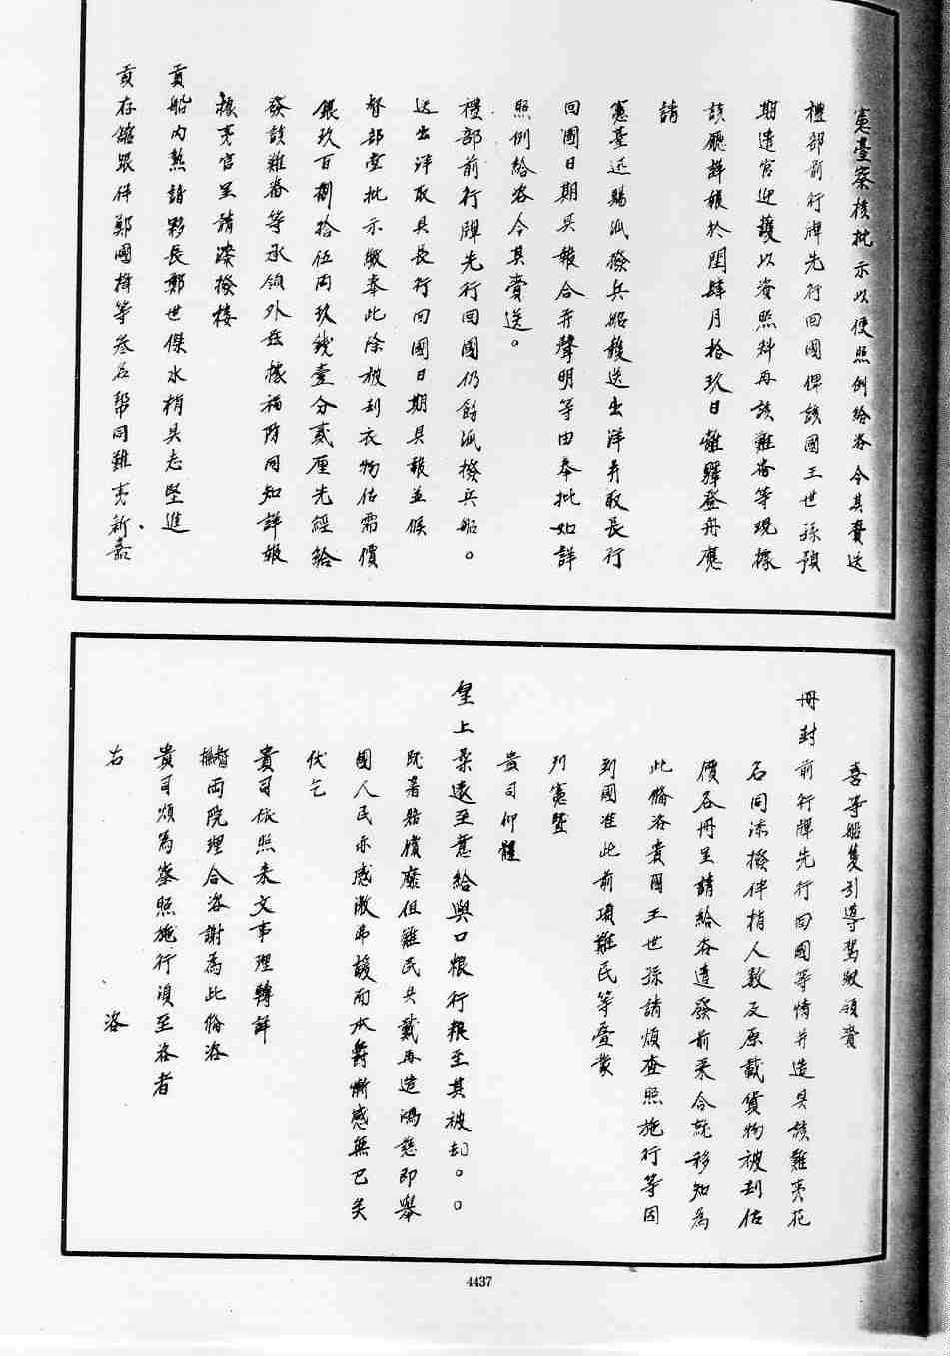 憲臺察核批示以便照例給咨令其賫送
禮部前行牌先行回國俾該國王世孫預
期遣官迎護以資照料再該難畨等現據
該廳詳候於閏肆月拾玖日離驛登舟應
請
憲臺迅賜派撥兵船護送出洋并取長行
回國日期具報合并聲明等由奉批如詳
照例給咨令其賫送。
禮部前行牌先行回國仍飭派撥兵船。
送出洋取具長行回國日期具報並候
督部堂批示繳奉此除被刮衣物估需價
銀玖百捌拾伍両玖錢壹分貳厘先經給
發該難畨等承領外茲據福防同知詳報
據夷官呈請添撥接
貢船内熟諳夥長鄭世傑水梢吳志堅進
貢存舘跟伴鄭國揖等叁名幇同難夷新嘉
喜等船隻引導駕駛領賫
冊封前行牌先行回國等情并造具該難夷花
名同添撥伴梢人数及原載貨物被刮估
價各冊呈請給咨遣發前来合就移知為
此俻咨貴國王世孫請煩查照施行等因
到國准此前項難民等疊蒙
列憲曁
貴司仰體
皇上柔遠至意給與口粮行粮至其被刧。。
既著賠償靡但難民共戴再造鴻慈即舉
國人民亦感激弗諼而本爵慚感無已矣
伏乞
貴司依照来文事理轉詳
撫督両院理合咨謝為此俻咨
貴司煩為察照施行湏至咨者
右 咨
4437